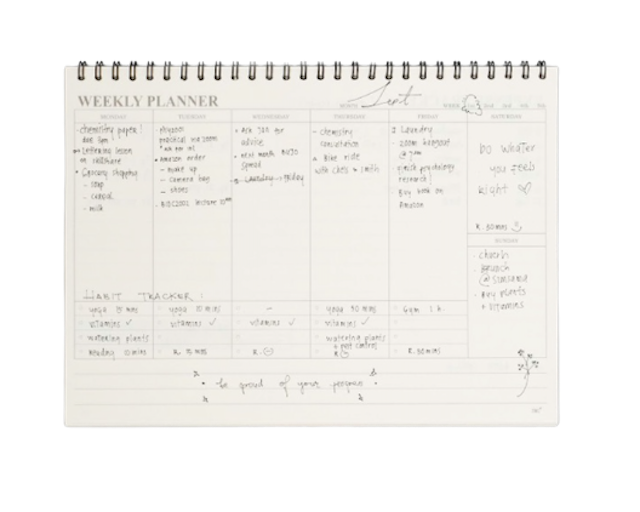 WEEKLY PLANNER
MONTH Sept
WEEK
MONDAY
chemistry paper!
due 8pm
Lettering lesson
on skillshare
Grocery shopping
- soap
- cereal
- milk
TUESDAY
practical via zoom
Amazon order
- make up
- camera bag
- shoes
lecture
WEDNESDAY
Ask Jan for
advice
next month BUJO
spread
Laundry → Friday
THURSDAY
chemistry
consultation
Bike ride
with Ches & smith
FRIDAY
Laundry
zoom hangout
@ 7pm
finish psychology
research
Buy book on
Amazon
SATURDAY
DO WHATEVER
you feels
Right ♡
R. 30 mns
SUNDAY
church
Brunch
Buy plants
+ vitamins
HABIT TRACKER :
yoga 15 mns
yoga 10 mins
-
yoga 30 mns
Gym 1 h.
vitamins ✓
vitamins ✓
vitamins ✓
vitamins ✓
watering plants
watering plants
+ pest control
Reading 10 mins
R. 15 mns
R.
R
R. 30 mins
be proud of your progress